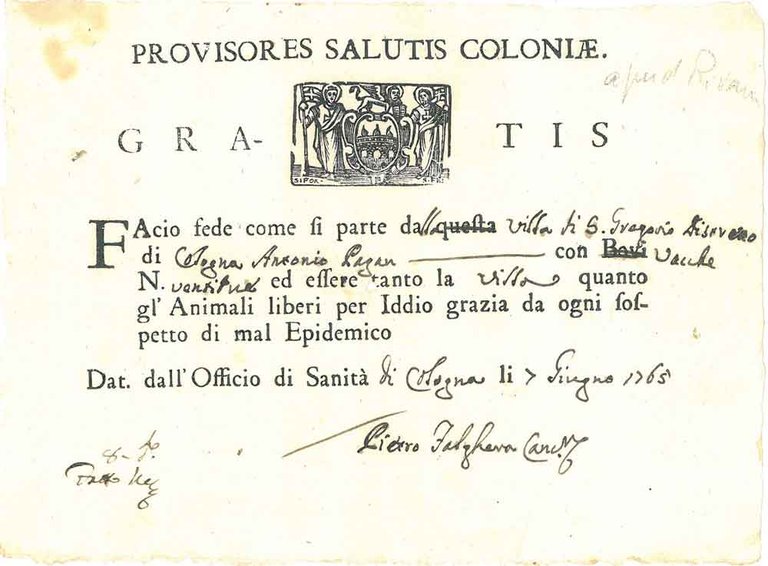 PROVISORES SALUTIS COLONIÆ.
apud Rivam
GRA- TIS
FAcio fede come si parte dalla questa villa di S. Gregorio
di Cologna Antonio Pagan con Bovi Vacche
N. ventitre ed essere tanto la villa quanto
gl' Animali liberi per Iddio grazia da ogni sos-
petto di mal Epidemico
Dat. dall' Officio di Sanità di Cologna li 7 Giugno 1765
Pietro Falghera Canc.